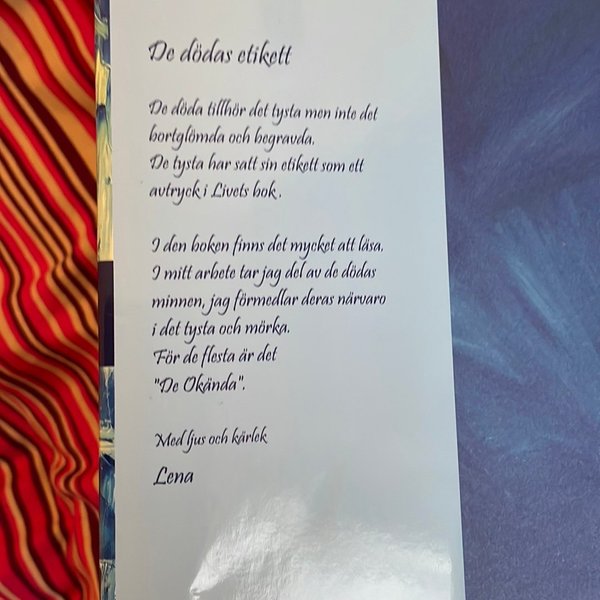 De dödas etikett
De döda tillhör det tysta men inte det
bortglömda och begravda.
De tysta har satt sin etikett som ett
avtryck i Livets bok.
I den boken finns det mycket att läsa.
I mitt arbete tar jag del av de dödas
minnen, jag förmedlar deras närvaro
i det tysta och mörka.
För de flesta är det
"De Okända".
Med ljus och kärlek
Lena